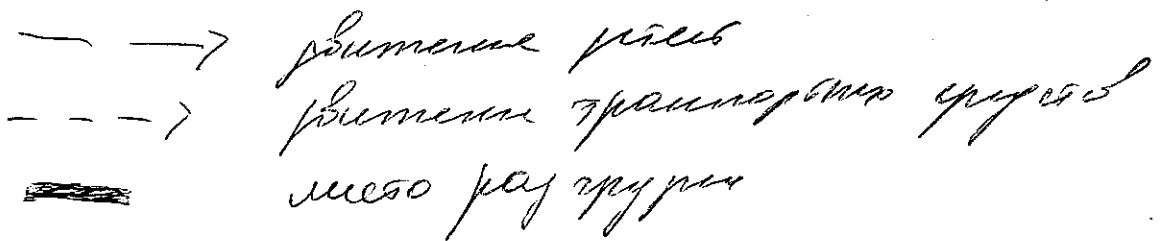 движение детей
движение транспортных средств
место разгрузки